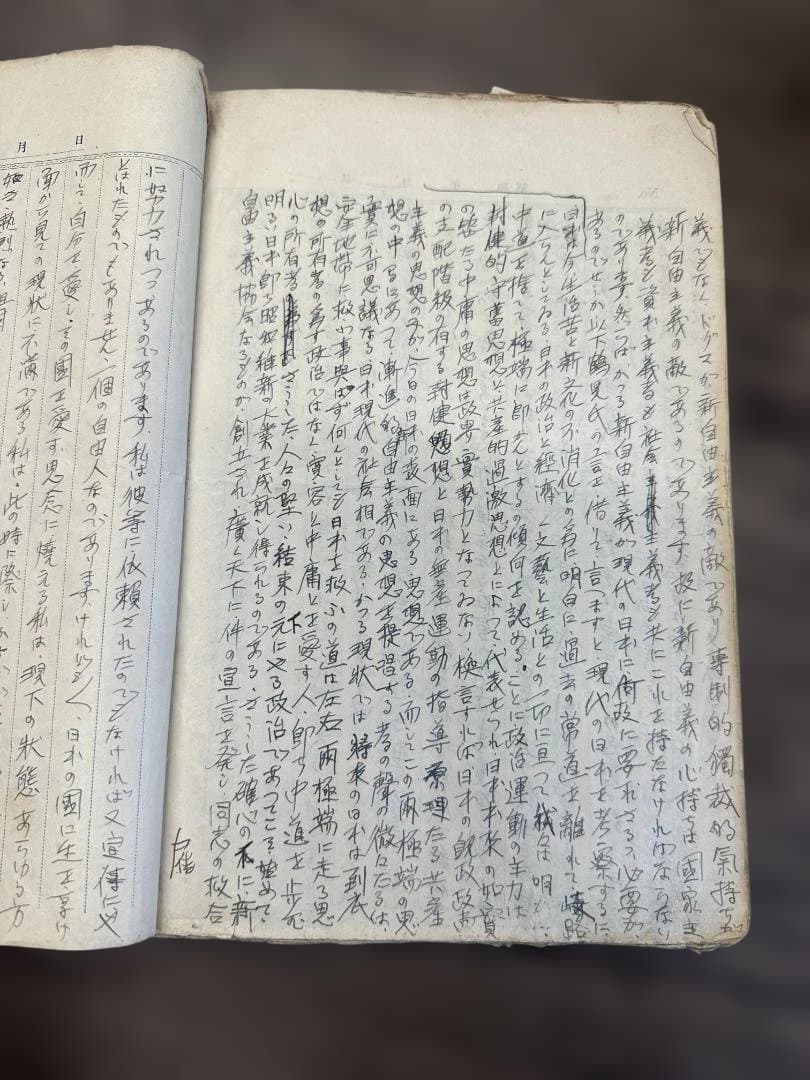 義でもなくドグマが新自由主義の敵であり専制的獨裁的氣持ちが
新自由主義の敵であるのであります 故に新自由義の心持ちは國家主
義者も資本主義者も社会主義者も共にこれを持たなければならない
のであります。然つばかつる新自由主義が現代の日本に何故に要れさるゝ必要が
あるのでせうか以下鶴見氏の言を借りて言つますと現代の日本を考察するに
日本は今生活苦と新文化の不消化との為に明白に過去の常道を離れて岐路
に入らんとしてゐる・日本の政治と經濟、文藝と生活との一切に亘つて我々は明かに
中道を捨てて極端に卽かんとするの傾向を認める。ことに政治運動の主力は
封健的守舊思想と共産的過激思想とによつて代表せられ日本本來の如實
の姿たる中庸の思想は政界實勢力となつてゐない換言すれば日本の既政政黨
の支配階級の有する封健思想と日本の無産運動の指導原理たる共産
主義の思想のみが今日の日本の表面にある思想である 而してこの兩極端の思
想の中間にあつて漸進的自由主義の思想を提唱する者の聲の微々たるは、
實に不可思議なる日本現代の社会相である・かつる現狀では将来の日本は到底
安全地帯に救ふ事與はず何んとしても日本を救ふの道は左右兩極端に走る思
想の所有者の為す政治ではなく寛容と中庸とを愛す人、卽ち中道を歩む
心の所有者さうした人々の堅い結束の元にやる政治であつてこそ始めて
明るい日本卽ち昭和維新の大業を成就し得られるのである・さうした確心の下に新
自由主義協会なるものが創立され廣く天下に件の宣言を発し同志の救合
日
月
に努力されつゝあるのであります 私は彼等に依頼されたのでもなければ又宣傳にや
とはれたものでもありません、一個の自由人なのであります。けれども、日本の國に生を享け
而して自分を愛し、その國を愛す思念に燃える私は現下の狀態 あらゆる方
面から見ての現狀に不満である私は・此の時に際し